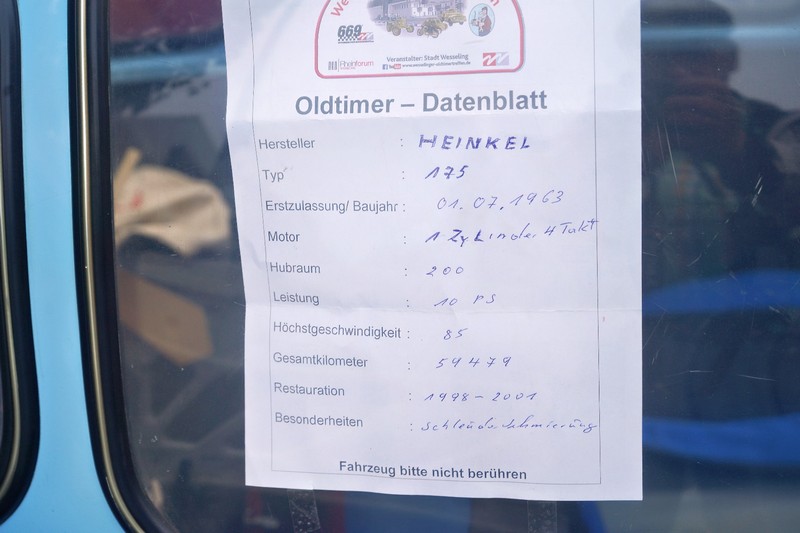 669
Rheinforum
Veranstalter: Stadt Wesseling
Oldtimer – Datenblatt
Hersteller : HEINKEL
Typ : 175
Erstzulassung/ Baujahr : 01.07.1963
Motor : 1 Zylinder 4 Takt
Hubraum : 200
Leistung : 10 PS
Höchstgeschwindigkeit : 85
Gesamtkilometer : 59479
Restauration : 1998-2001
Besonderheiten : Schleuderschmierung
Fahrzeug bitte nicht berühren